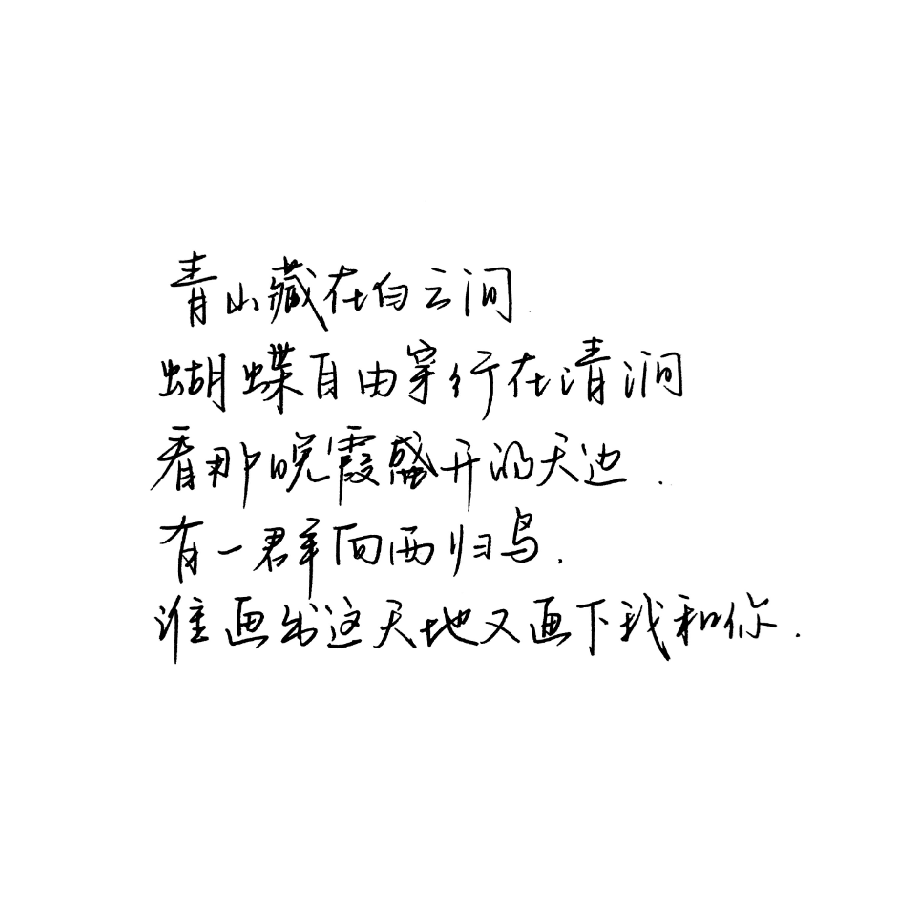 青山藏在白云间
蝴蝶自由穿行在清涧
看那晚霞盛开的天边.
有一群向西归鸟.
谁画出这天地又画下我和你.